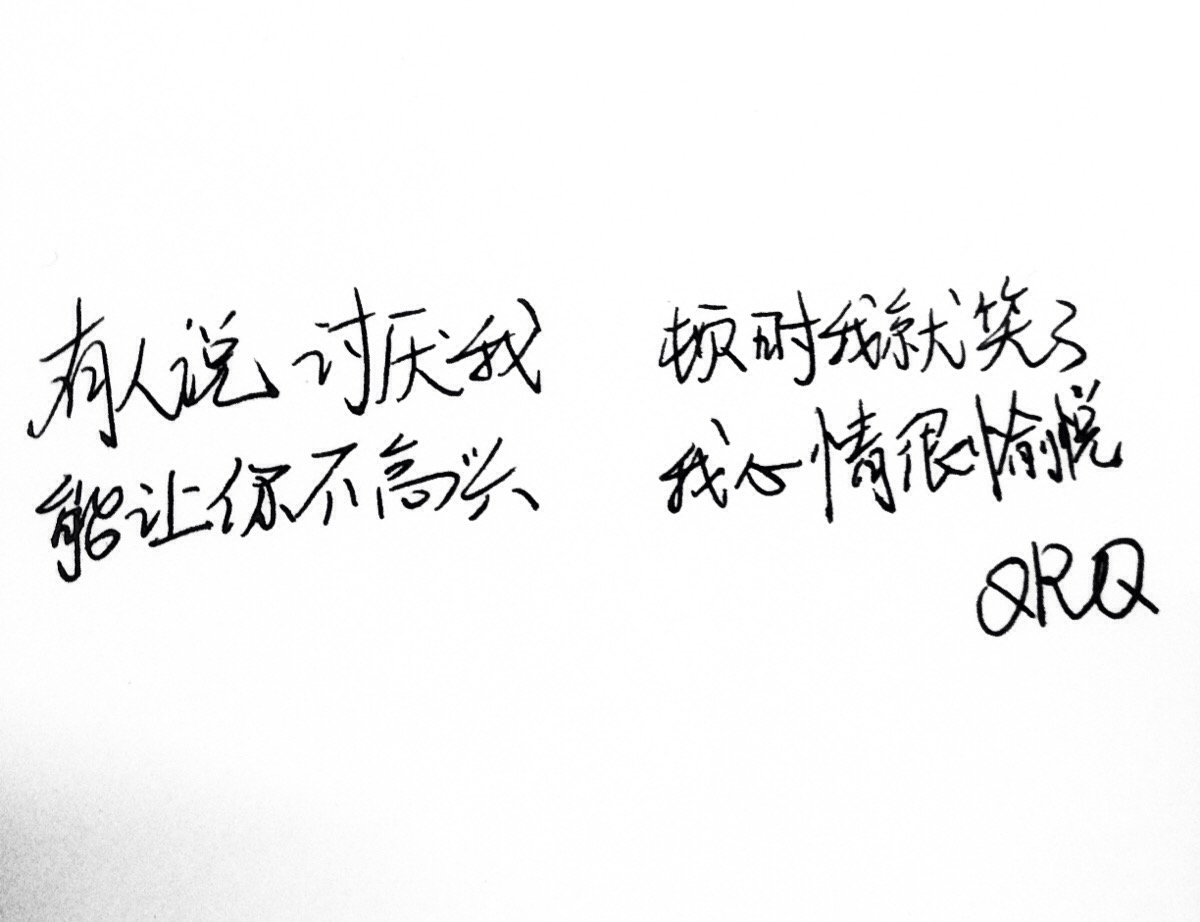 有人说讨厌我 顿时我就笑了
能让你不高兴 我心情很愉悦
QRQ